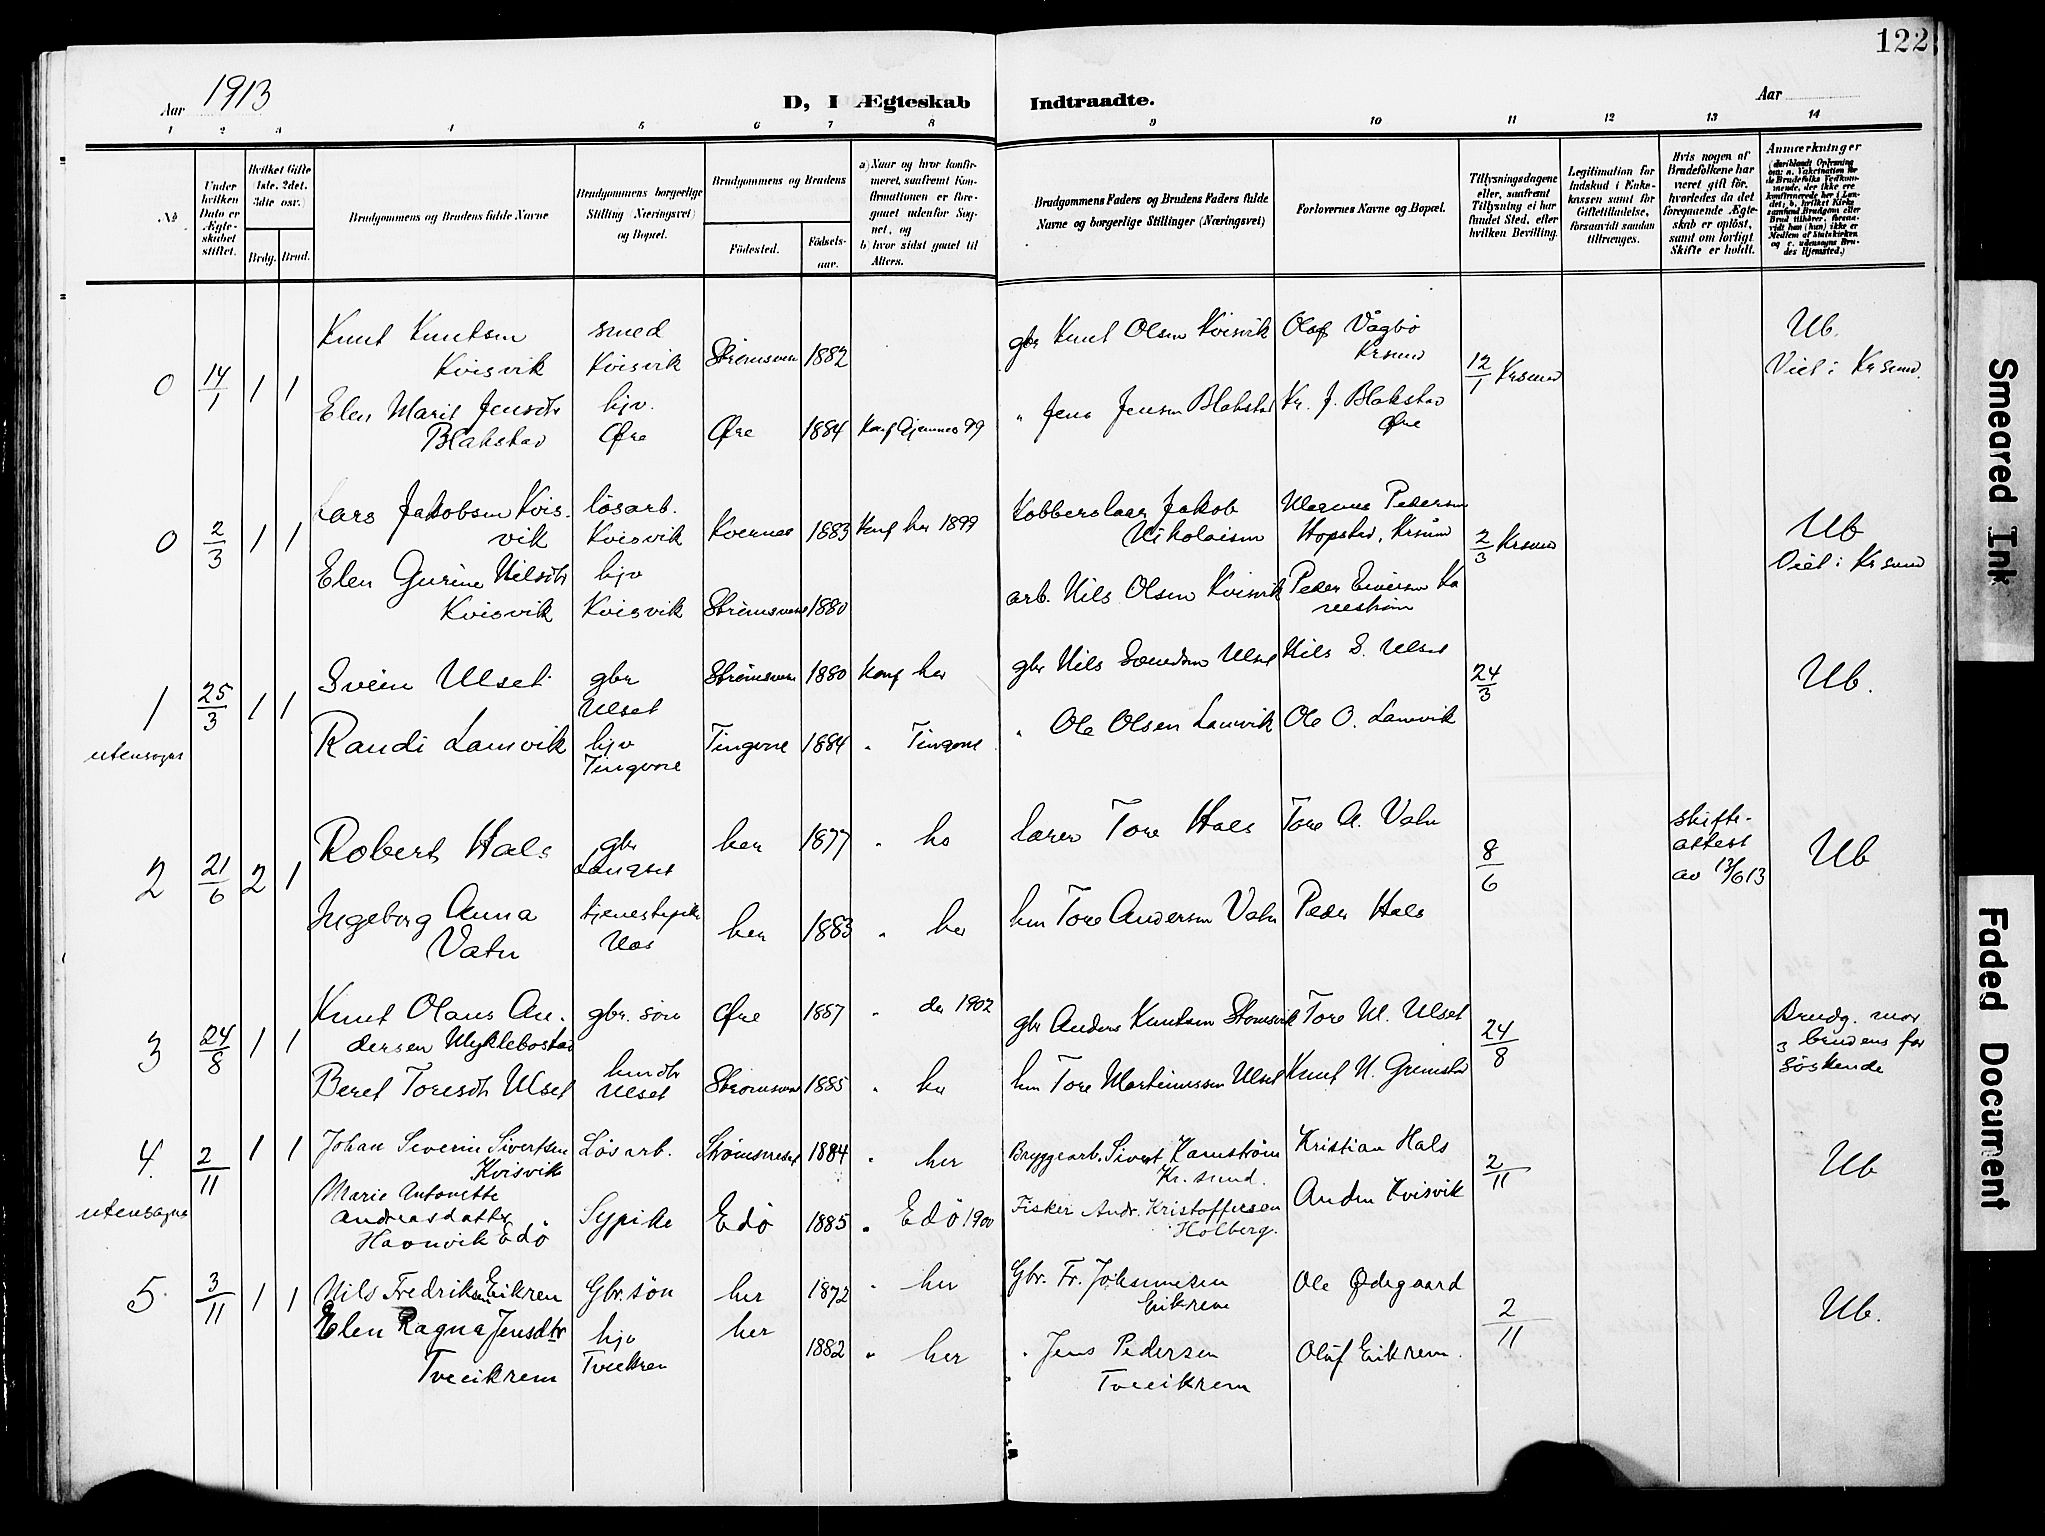 122
Aar 1913
D, I Ægteskab Indtraadte.
Aar
1 2 3 4 5 6 7 8 9 10 11 12 13 14
No
Under hvilken Dato er Ægteskabet stiftet.
Hvilket Gifte 1ste. 2det. 3die osv.)
Brdg. Brud.
Brudgommens og Brudens fulde Navne
Brudgommens borgerlige Stilling (Næringsvei) og Bopæl.
Brudgommens og Brudens
Födested.
Födselsaar.
a) Naar og hvor konfirmeret, saafremt Konfirmationen er foregaaet udenfor Sognet, og
b) hvor sidst gaaet til Alters.
Brudgommens Faders og Brudens Faders fulde Navne og borgerlige Stillinger (Næringsvei)
Forlovernes Navne og Bopæl.
Tillysningsdagene eller, saafremt Tillysning ei har fundet Sted, efter hvilken Bevilling.
Legitimation for Indskud i Enkekassen samt for Giftetilladelse, forsaavidt saadan tiltrænges.
Hvis nogen af Brudefolkene har været gift før, hvorledes da det foregaaende Ægteskab er oplöst, samt om lovligt Skifte er holdt.
Anmærkninger
0 14/1 1 1
Knut Knutsen Kvisvik
smed Kvisvik
Strömsnes 1882
gbr Knut Olsen Kvisvik
Olaf Vågbø Krsund
12/1 Krsund
Ub.
Viet i Krsund.
Elen Marit Jensdtr Blakstad
hjv. Øre
Øre 1884
Konf Gjemnes 99
" Jens Jensen Blakstad
Kr. J. Blakstad Øre
0 2/3 1 1
Lars Jakobsen Kvisvik
løsarb. Kvisvik
Kvernes 1883
Konf her 1899
Kobberslager Jakob Nikolaisen
Magnus Pedersen Hopstad, Krsund
2/3 Krsund
Ub
Viet i Krsund
Elen Gurine Nilsdtr Kvisvik
hjv Kvisvik
Strömsnes 1880
arb. Nils Olsen Kvisvik
1 utensogns 25/3 1 1
Svein Ulset
gbr Ulset
Strömsnes 1880
Konf her
gbr Nils Svendsen Ulset
Nils S. Ulset
24/3
Ub.
Randi Lamvik
hjv Tingvoll
Tingvoll 1884
" Tingvoll
" Ole Olsen Lamvik
Ole O. Lamvik
2 21/6 2 1
Robert Hals
gbr Langset
her 1877
" her
lærer Tore Hals
Tore A. Vatn
8/6
skifteattest av 13/6 13
Ub
Ingeborg Anna Vatn
her 1883
" her
hm Tore Andersen Vatn
Peder Hals
3 24/8 1 1
Knut Olaus Andersen Myklebostad
gbr. søn
Øre 1887
" der 1902
gbr Anders Knutsen Stomsvik
Tore M. Ulset
24/8
Brudg. mor & brudens far söskende
Beret Toresdtr Ulset
hmdtr Ulset
Strömsnes 1885
" her
hm Tore Martinussen Ulset
Knut N. Grimstad
4 utensogns 2/11 1 1
Johan Severin Sivertsen Kvisvik
Løsarb.
Strømsneset 1884
" her
Bryggearb. Sivert Kamstrøm Kr.sund.
Kristian Hals
2/11
Ub
Marie Antonette Andreasdatter Havnvik Edö
Sypike
Edö 1885
" Edö 1900
Fisker Andr. Kristoffersen Holberg.
Anders Kvisvik
5 3/11 1 1
Nils Fredriksen Eikrem
Gbr. søn
her 1872
" her
Gbr. Fr. Johannesen Eikrem
Ole Ødegaard
2/11
Ub.
Elen Ragna Jensdtr Tveeikrem
hjv Tveikrem
her 1882
" her
" Jens Pedersen Tveeikrem
Oluf Eikrem.
Smeared Ink
Faded Document